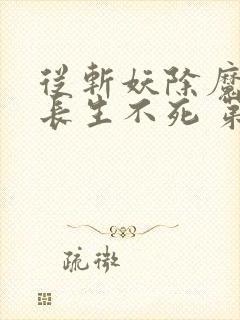 從斬妖除魔
長生不死 第
疏微